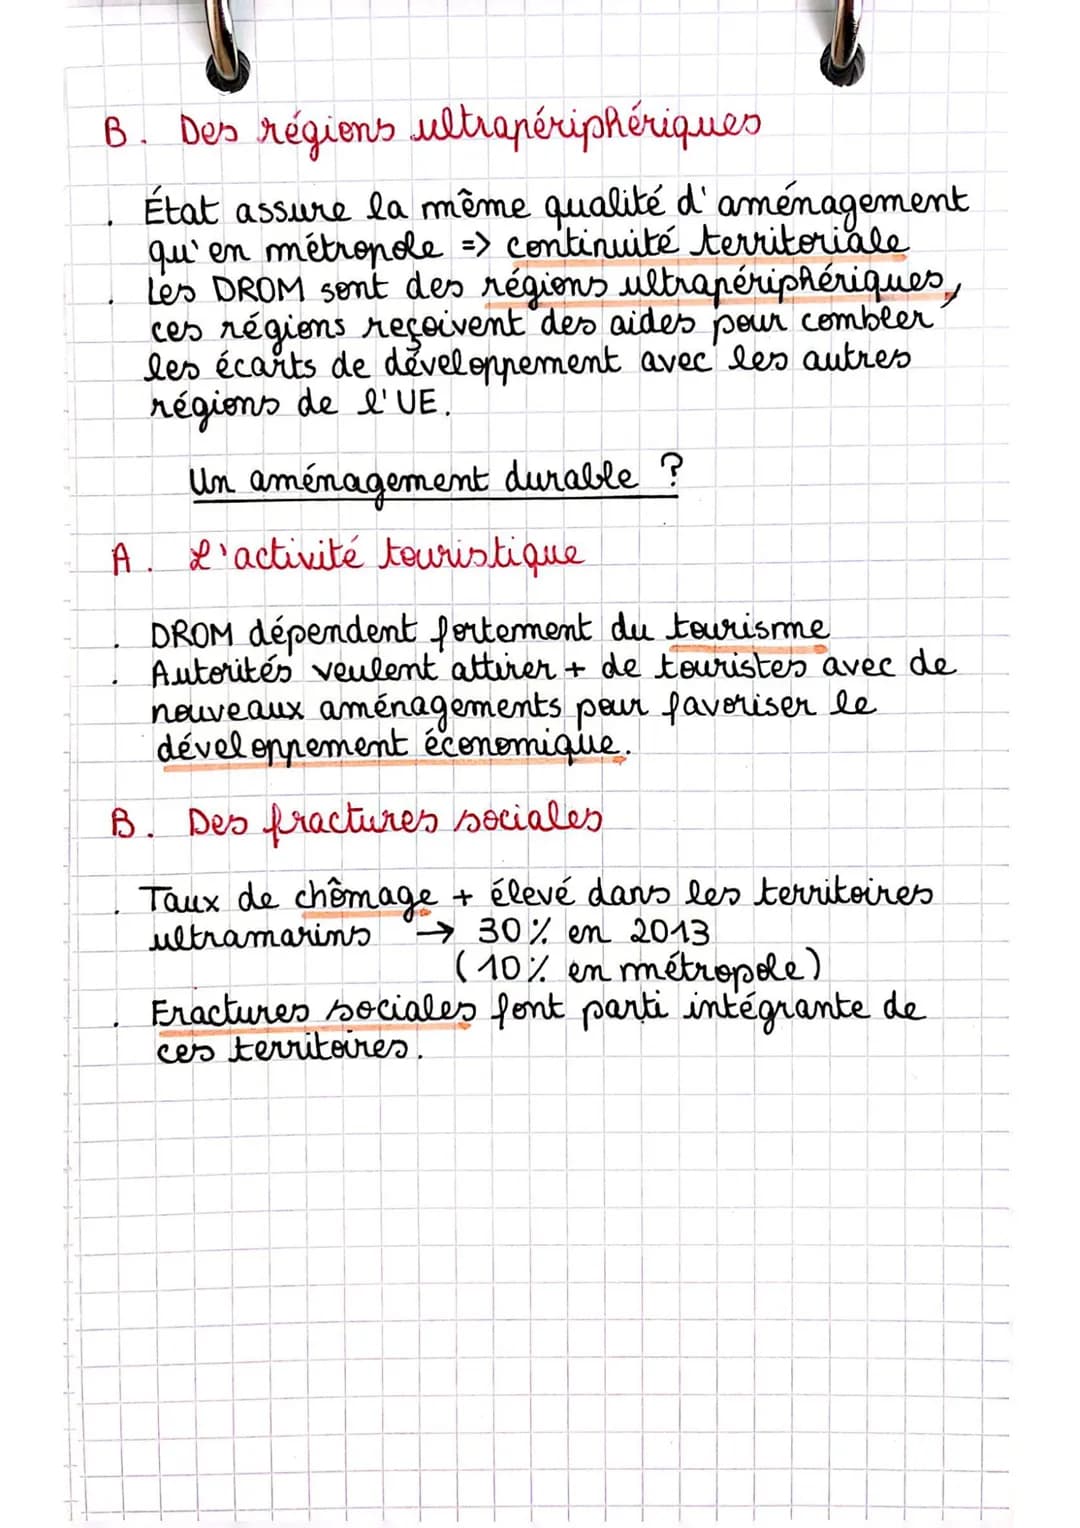 B. Des régions ultrapériphériques
. État assure la même qualité d'aménagement
qu'en métropole => continuité territoriale
. Les DROM sont des régions ultrapériphériques,
ces régions reçoivent des aides pour combler
les écarts de développement avec les autres
régions de l'UE.
Un aménagement durable ?
A. L'activité touristique
. DROM dépendent fortement du tourisme
. Autorités veulent attirer + de touristes avec de
nouveaux aménagements pour favoriser le
développement économique.
B. Des fractures sociales
. Taux de chômage + élevé dans les territoires
ultramarins → 30% en 2013
(10% en métropole)
. Fractures sociales font parti intégrante de
ces territoires.